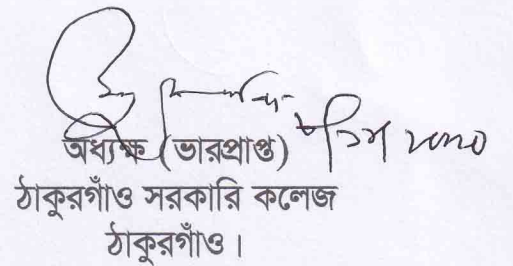 অধ্যক্ষ (ভারপ্রাপ্ত)
ঠাকুরগাঁও সরকারি কলেজ
ঠাকুরগাঁও।